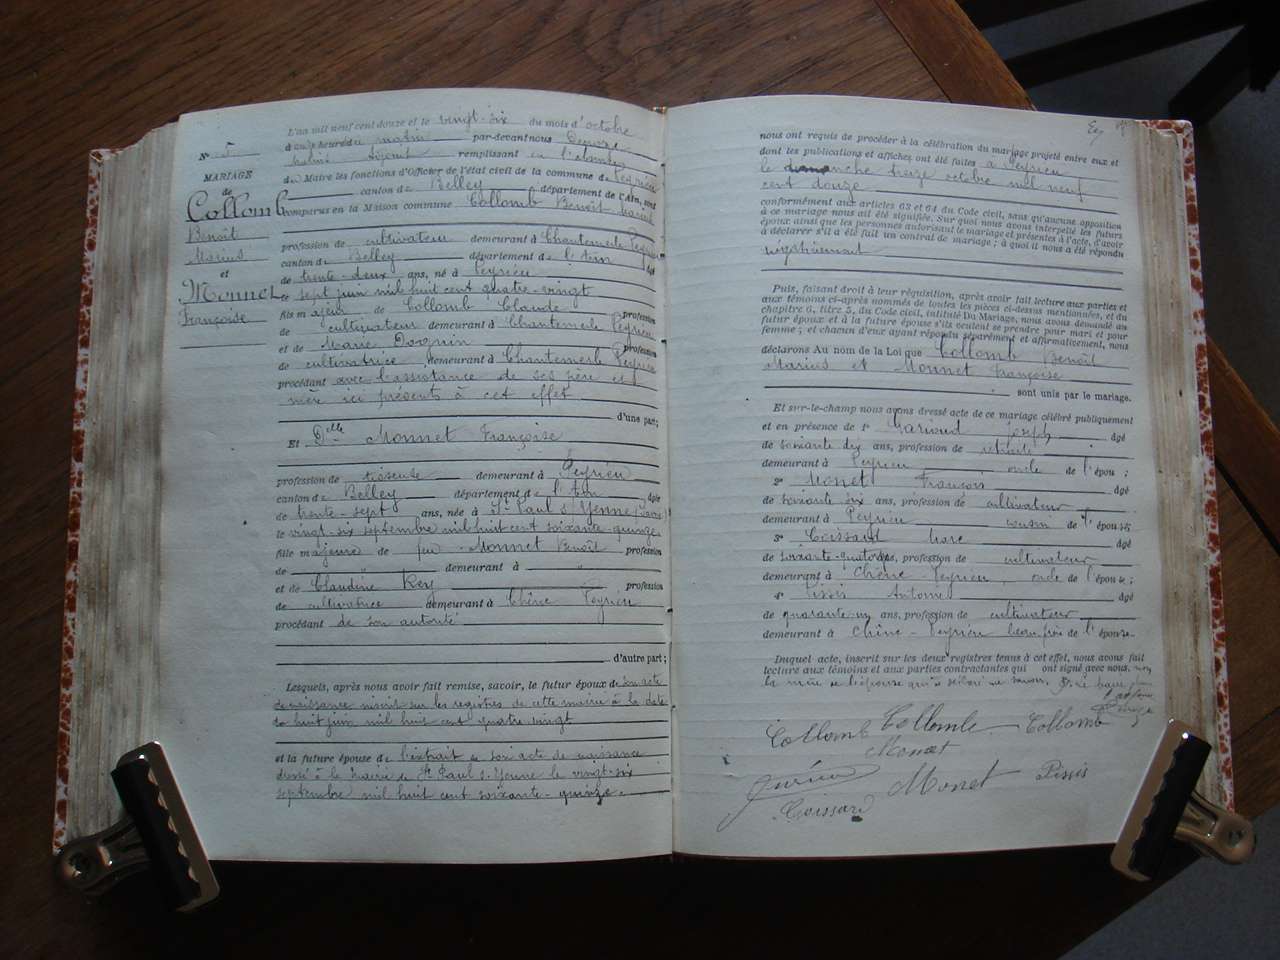 N° 5
MARIAGE
de
Collomb
Benoît
Marius
et
Monnet
Françoise
L'an mil neuf cent douze et le vingt-six du mois d'octobre
à onze heures du matin par-devant nous
remplissant en l'absence
du Maire les fonctions d'Officier de l'état civil de la commune de Peyrieu
canton de Belley département de l'Ain, sont
comparus en la Maison commune Collomb Benoît Marius
profession de cultivateur demeurant à Chantemerle Peyrieu
canton de Belley département de l'Ain âgé
de trente-deux ans, né à Peyrieu
le sept juin mil huit cent quatre-vingt
fils majeur de Collomb Claude profession
de cultivateur demeurant à Chantemerle Peyrieu
et de Marie profession
de cultivatrice demeurant à Chantemerle Peyrieu
procédant avec l'assistance de ses père et
mère ici présents à cet effet
d'une part;
Et Dlle Monnet Françoise
profession de demeurant à Peyrieu
canton de Belley département de l'Ain âgée
de trente-sept ans, née à St Paul s Yenne
le vingt-six septembre mil huit cent soixante-quinze
fille majeure de feu Monnet Benoît profession
de demeurant à
et de Claudine Rey profession
de cultivatrice demeurant à Chêne Peyrieu
procédant de son autorité
d'autre part;
Lesquels, après nous avoir fait remise, savoir, le futur époux de son acte
de naissance inscrit sur les registres de cette mairie à la date
du huit juin mil huit cent quatre vingt
et la future épouse de l'extrait de son acte de naissance
dressé à la mairie de St Paul s. Yenne le vingt-six
septembre mil huit cent soixante-quinze.
nous ont requis de procéder à la célébration du mariage projeté entre eux et
dont les publications et affiches ont été faites à Peyrieu
le dimanche treize octobre mil neuf
cent douze
conformément aux articles 63 et 64 du Code civil, sans qu'aucune opposition
à ce mariage nous ait été signifiée. Sur quoi nous avons interpellé les futurs
époux ainsi que les personnes autorisant le mariage et présentes à l'acte, d'avoir
à déclarer s'il a été fait un contrat de mariage; à quoi il nous a été répondu
négativement
Puis, faisant droit à leur réquisition, après avoir fait lecture aux parties et
aux témoins ci-après nommés de toutes les pièces ci-dessus mentionnées, et du
chapitre 6, titre 5, du Code civil, intitulé Du Mariage, nous avons demandé au
futur époux et à la future épouse s'ils veulent se prendre pour mari et pour
femme; et chacun d'eux ayant répondu séparément et affirmativement, nous
déclarons Au nom de la Loi que Collomb Benoît
Marius et Monnet Françoise
sont unis par le mariage.
Et sur-le-champ nous avons dressé acte de ce mariage célébré publiquement
et en présence de 1° Joseph âgé
de soixante dix ans, profession de retraité
demeurant à Peyrieu, oncle de l'épou ;
2° Monet François âgé
de soixante six ans, profession de cultivateur
demeurant à Peyrieu cousin de l'épouse
3° Coissard Marc âgé
de soixante-quatorze, profession de cultivateur
demeurant à Chêne-Peyrieu, oncle de l'épouse;
4° Pissis Antoine âgé
de quarante-un ans, profession de cultivateur
demeurant à Chêne-Peyrieu beau frère de l'épouse.
Duquel acte, inscrit sur les deux registres tenus à cet effet, nous avons fait
lecture aux témoins et aux parties contractantes qui ont signé avec nous, non
la mère de l'épouse qui a déclaré ne savoir.
Collomb Collomb Collomb
Monet
Monet Pissis
Coissard